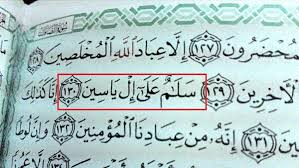 لَمُحْضَرُونَ ﴿١٢٧﴾ إِلَّا عِبَادَ اللَّهِ الْمُخْلَصِينَ
الْآخِرِينَ ﴿١٢٩﴾ سَلَامٌ عَلَىٰ إِلْ يَاسِينَ ﴿١٣٠﴾ إِنَّا كَذَٰلِكَ
﴿١٣١﴾ إِنَّهُ مِنْ عِبَادِنَا الْمُؤْمِنِينَ ﴿١٣٢﴾ وَإِنَّ لُوطًا